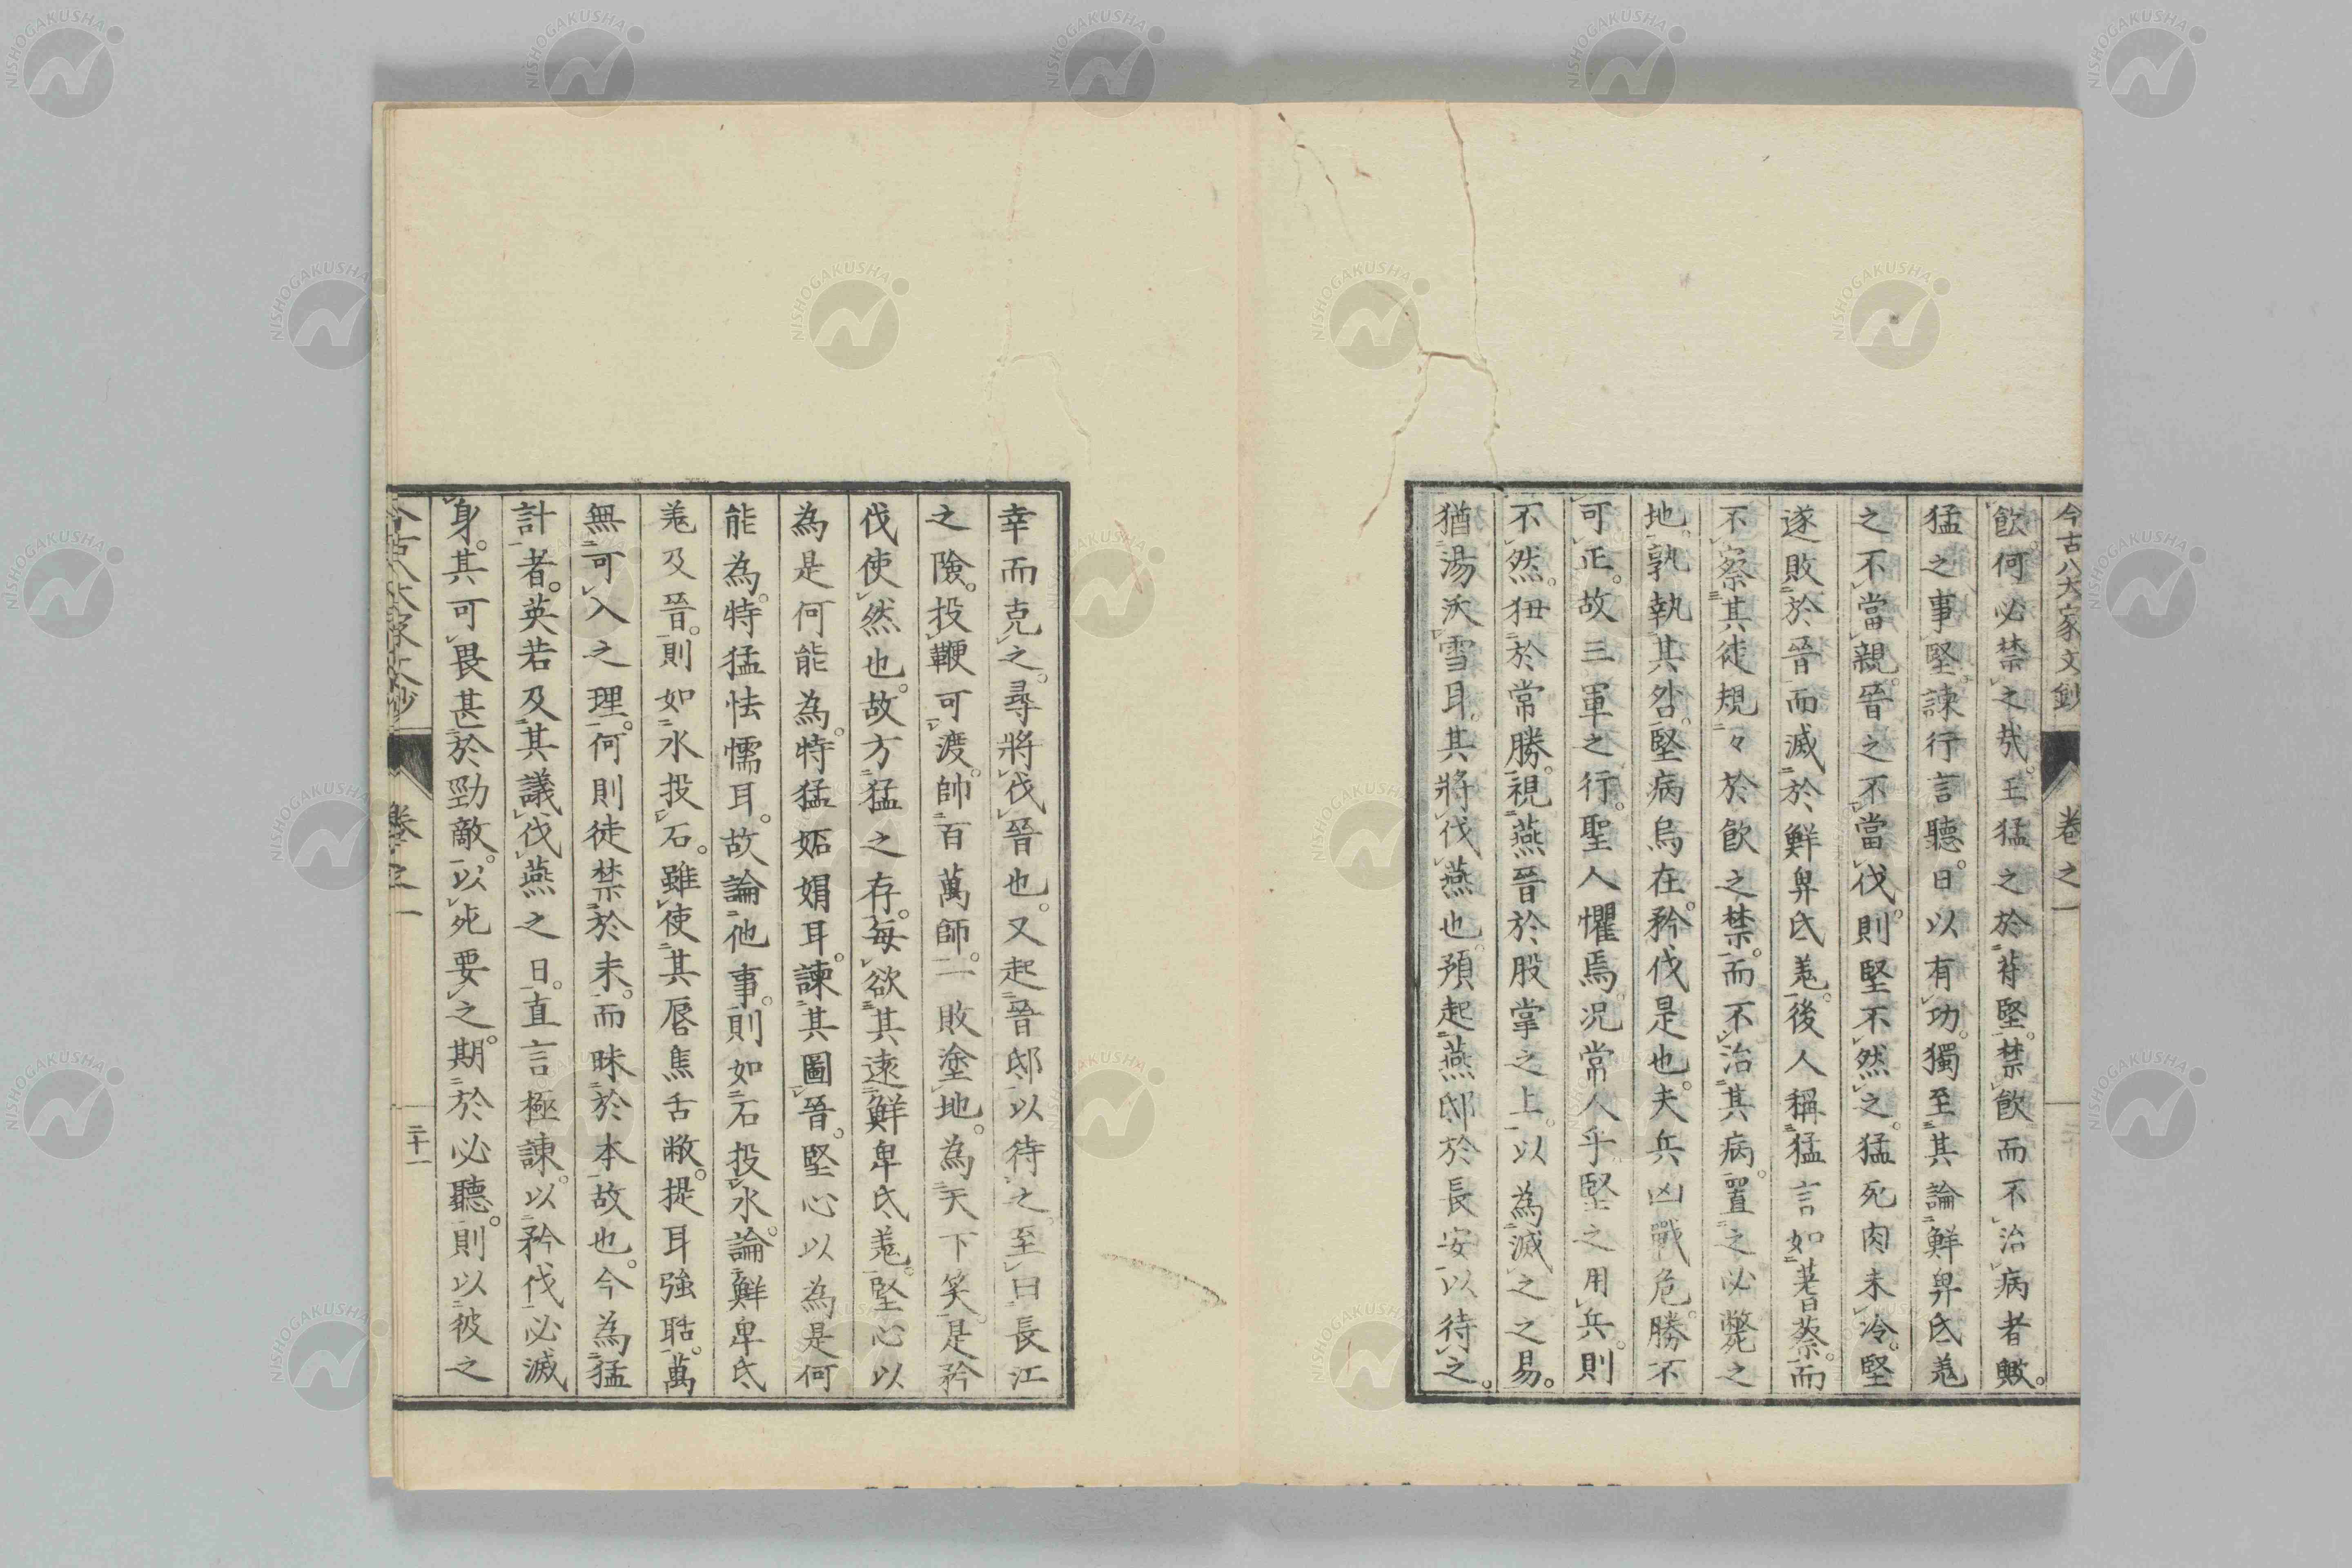 今古八大家文鈔 卷之一
飮何必禁之哉。王猛之於苻堅。禁飮而不治病者歟。
猛之事堅。諫行言聽。曰以有功。獨至其論鮮卑氐羗
之不當親。晉之不當伐。則堅不然之。猛死肉未冷。堅
遂敗於晉而滅於鮮卑氐羗。後人稱猛言如蓍蔡。而
不察其徒規々於飮之禁。而不治其病。置之必斃之
地。孰執其咎。堅病烏在。矜伐是也。夫兵凶戰危。勝不
可正。故三軍之行。聖人懼焉。況常人乎。堅之用兵。則
不然。狃於常勝。視燕晉於股掌之上。以為滅之之易。
猶湯沃雪耳。其將伐燕也。預起燕邸於長安以待之。
幸而克之。尋將伐晉也。又起晉邸以待之。至曰長江
之險。投鞭可渡。帥百萬師。一敗塗地。為天下笑。是矜
伐使然也。故方猛之存。每欲其遠鮮卑氐羗。堅心以
為是何能為。特猛妬娼耳。諫其圖晉。堅心以為是何
能為。特猛怯懦耳。故論他事。則如石投水。論鮮卑氐
羗及晉。則如水投石。雖使其唇焦舌敝。提耳強聒。萬
無可入之理。何則徒禁於末。而昧於本故也。今為猛
計者。英若及其議伐燕之日。直言極諫。以矜伐必滅
身。其可畏甚於勁敵。以死要之。期於必聽。則以彼之
今古八大家文鈔 卷之一 二十一